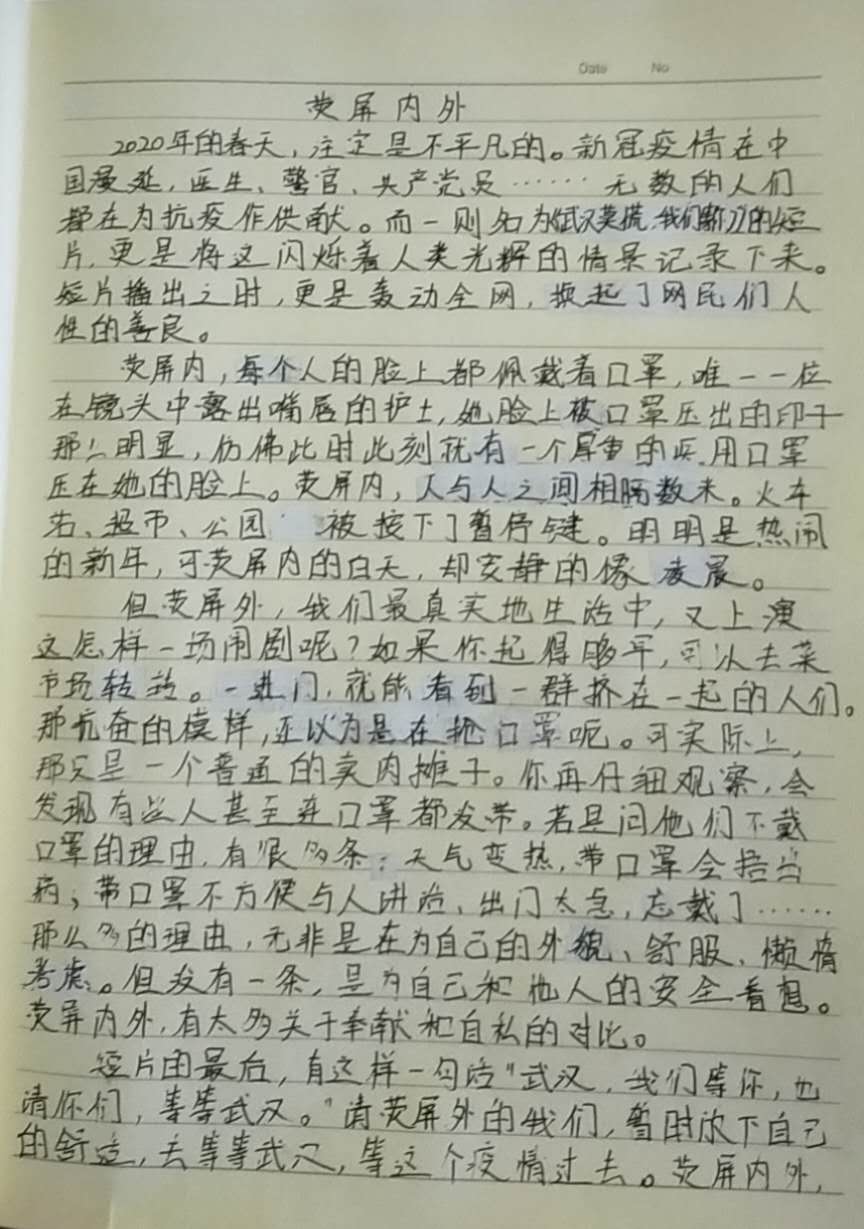 Date No
荧屏内外
2020年的春天，注定是不平凡的。新冠疫情在中
国蔓延，医生、警官、共产党员……无数的人们
都在为抗疫作供献。而一则名为《武汉莫慌，我们等你》的短
片，更是将这闪烁着人类光辉的情景记录下来。
短片播出之时，更是轰动全网，换起了网民们人
性的善良。
荧屏内，每个人的脸上都佩戴着口罩，唯一一位
在镜头中露出嘴唇的护士，她脸上被口罩压出的印子
那么明显，仿佛此时此刻就有一个厚重的医用口罩
压在她的脸上。荧屏内，人与人之间相隔数米。火车
站、超市、公园 被按下了暂停键。明明是热闹
的新年，可荧屏内的白天，却安静的像凌晨。
但荧屏外，我们最真实地生活中，又上演
这怎样一场闹剧呢？如果你起得够早，可以去菜
市场转转。一进门，就能看到一群挤在一起的人们。
那亢奋的模样，还以为是在抢口罩呢。可实际上，
那只是一个普通的卖肉摊子。你再仔细观察，会
发现有些人甚至连口罩都没带。若是问他们不戴
口罩的理由，有很多条：天气变热，带口罩会捂出
病；带口罩不方便与人讲话、出门太急，忘戴了……
那么多的理由，无非是在为自己的外貌、舒服、懒惰
考虑。但没有一条，是为自己和他人的安全着想。
荧屏内外，有太多关于奉献和自私的对比。
短片的最后，有这样一句话"武汉，我们等你，也
请你们，等等武汉。"请荧屏外的我们，暂时放下自己
的舒适，去等等武汉，等这个疫情过去。荧屏内外，